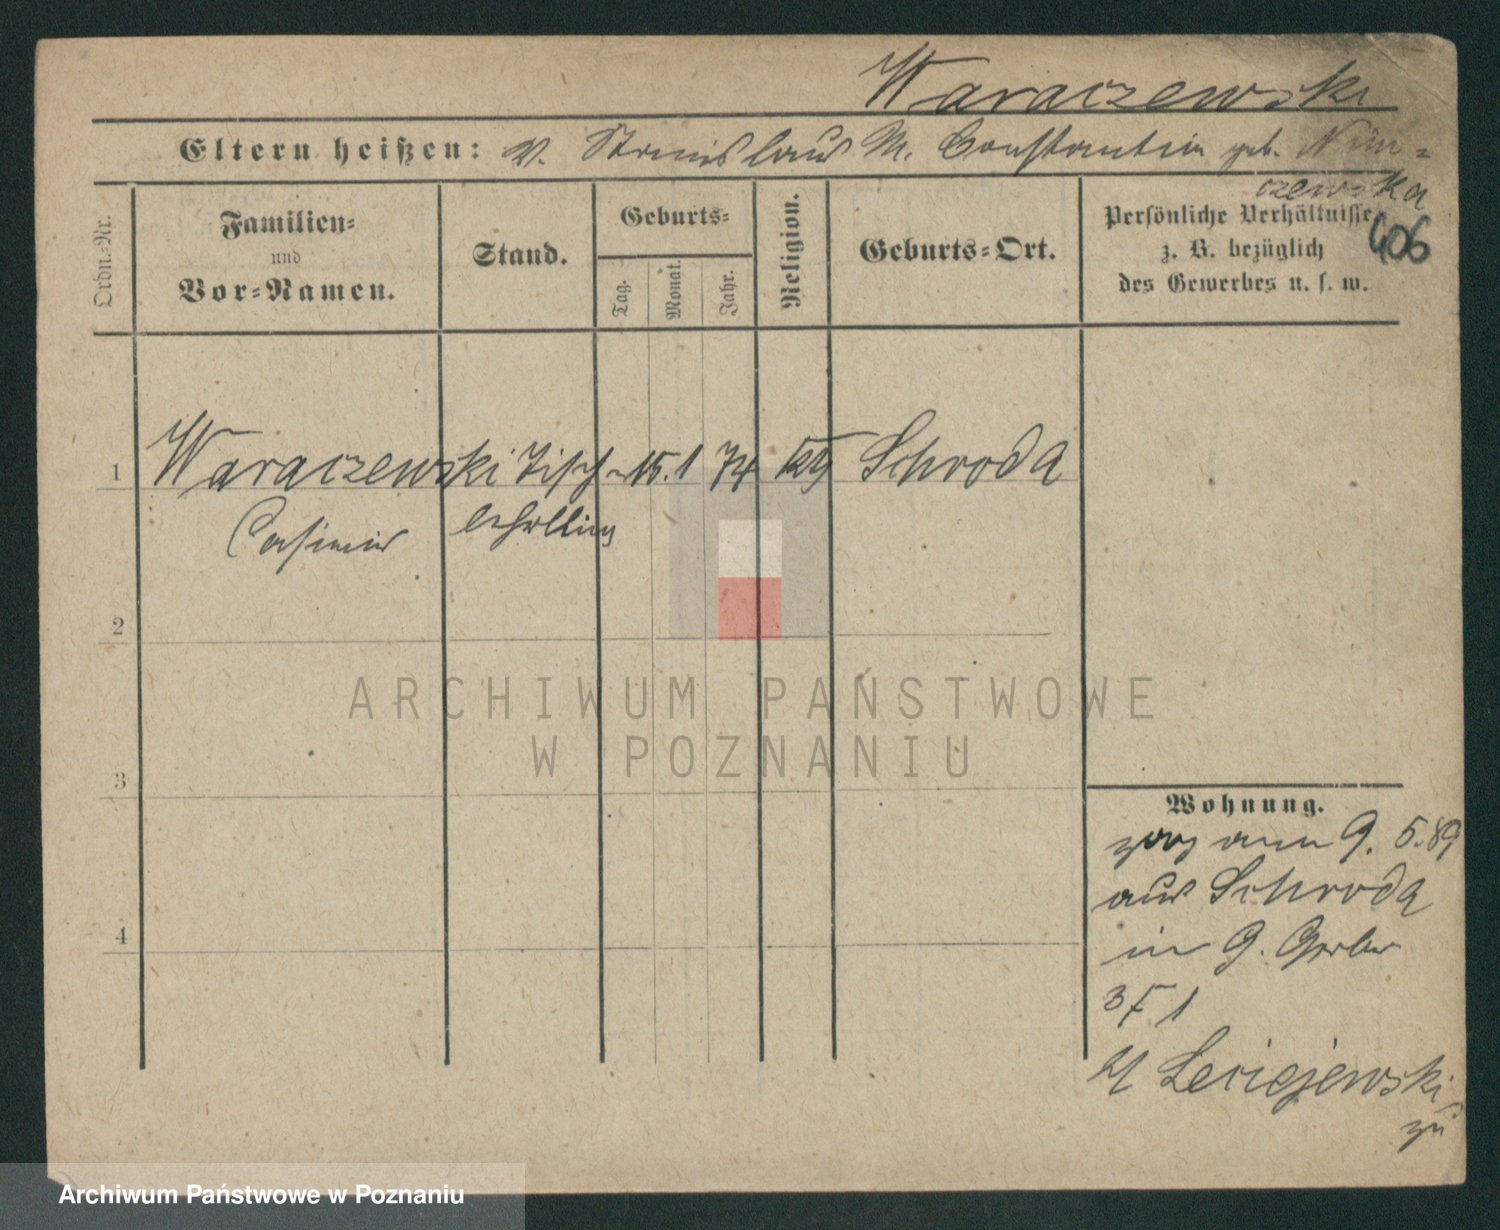 Waraczewski
Eltern heißen: V. Stanislaus M. Constantia geb. Nim=
czewska
406
Ordn.-Nr.
Familien=
und
Vor=Namen.
Stand.
Geburts=
Tag.
Monat.
Jahr.
Religion.
Geburts=Ort.
Persönliche Verhältnisse
z. B. bezüglich
des Gewerbes u. s. w.
1 Waraczewski Tisch- 15. 1 74 kth Schroda
Casimir lehrling
2
3
4
Wohnung.
zog am 9. 5. 89
aus Schroda
in G. Gerber
3 1
Leciejewski
zu
ARCHIWUM PAŃSTWOWE
W POZNANIU
Archiwum Państwowe w Poznaniu